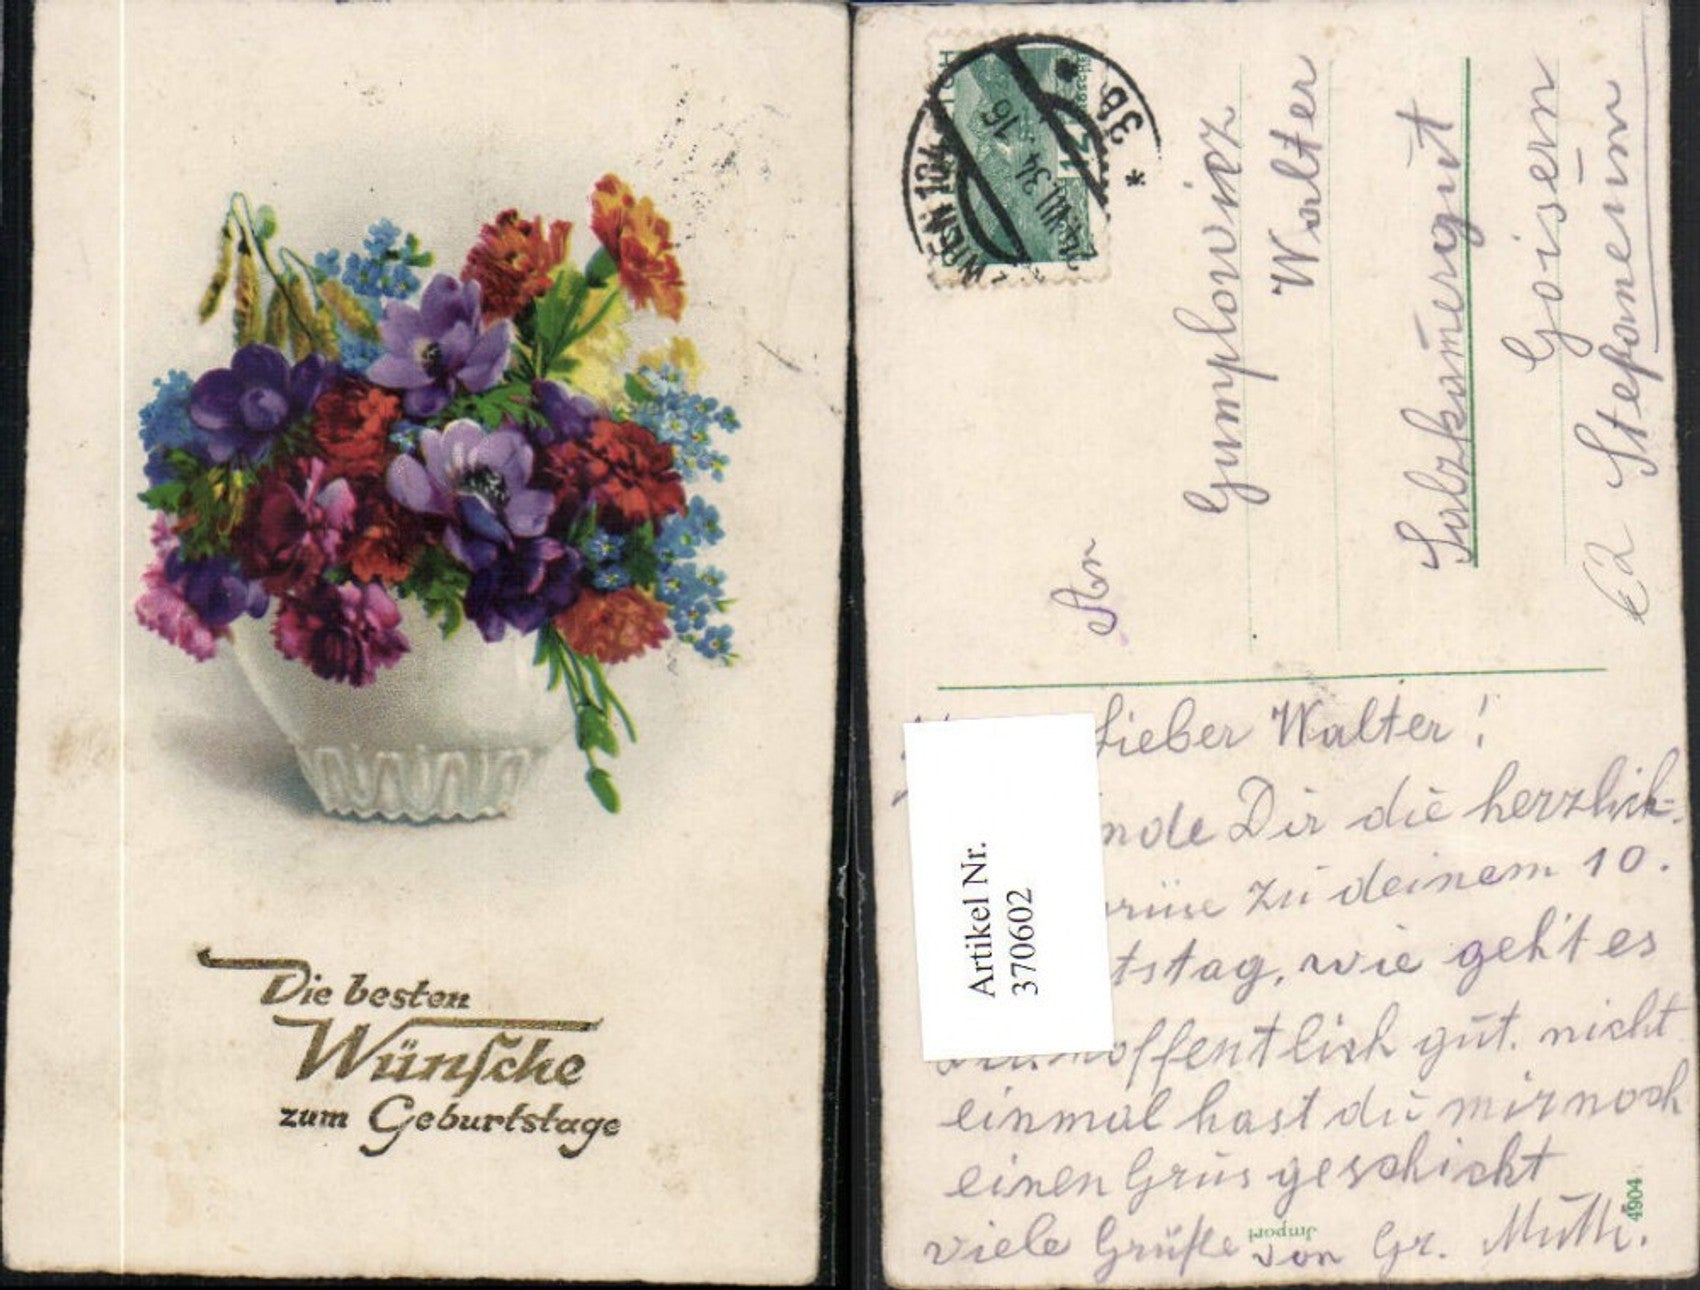 Die besten
Wünsche
zum Geburtstage
WIEN 104
24.VIII.34.16
3b
*
An
Gumplowicz
Walter
Salzkamergut
Goisern
Stefaneum
Artikel Nr.
370602
Lieber Walter!
Dir die herzlich-
zu deinem 10.
tstag, wie geht es
hoffentlich gut. nicht
einmal hast du mir noch
einen Grus geschickt
viele Grüße von Gr. Mutti.
Import
4904